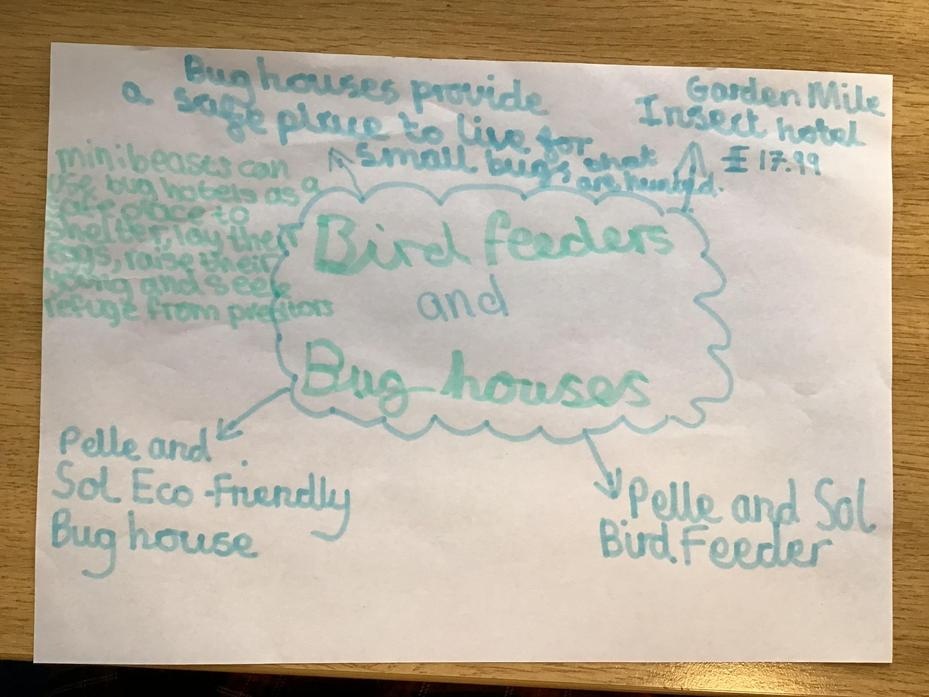 Bug houses provide
a safe place to live for
small bugs that
are hunted.
Garden Mile
Insect hotel
£ 17.99
minibeasts can
use bug hotels as a
safe place to
shelter, lay their
eggs, raise their
young and seek
refuge from preditors
Bird feeders
and
Bug houses
Pelle and
Sol Eco-Friendly
Bug house
Pelle and Sol
Bird Feeder